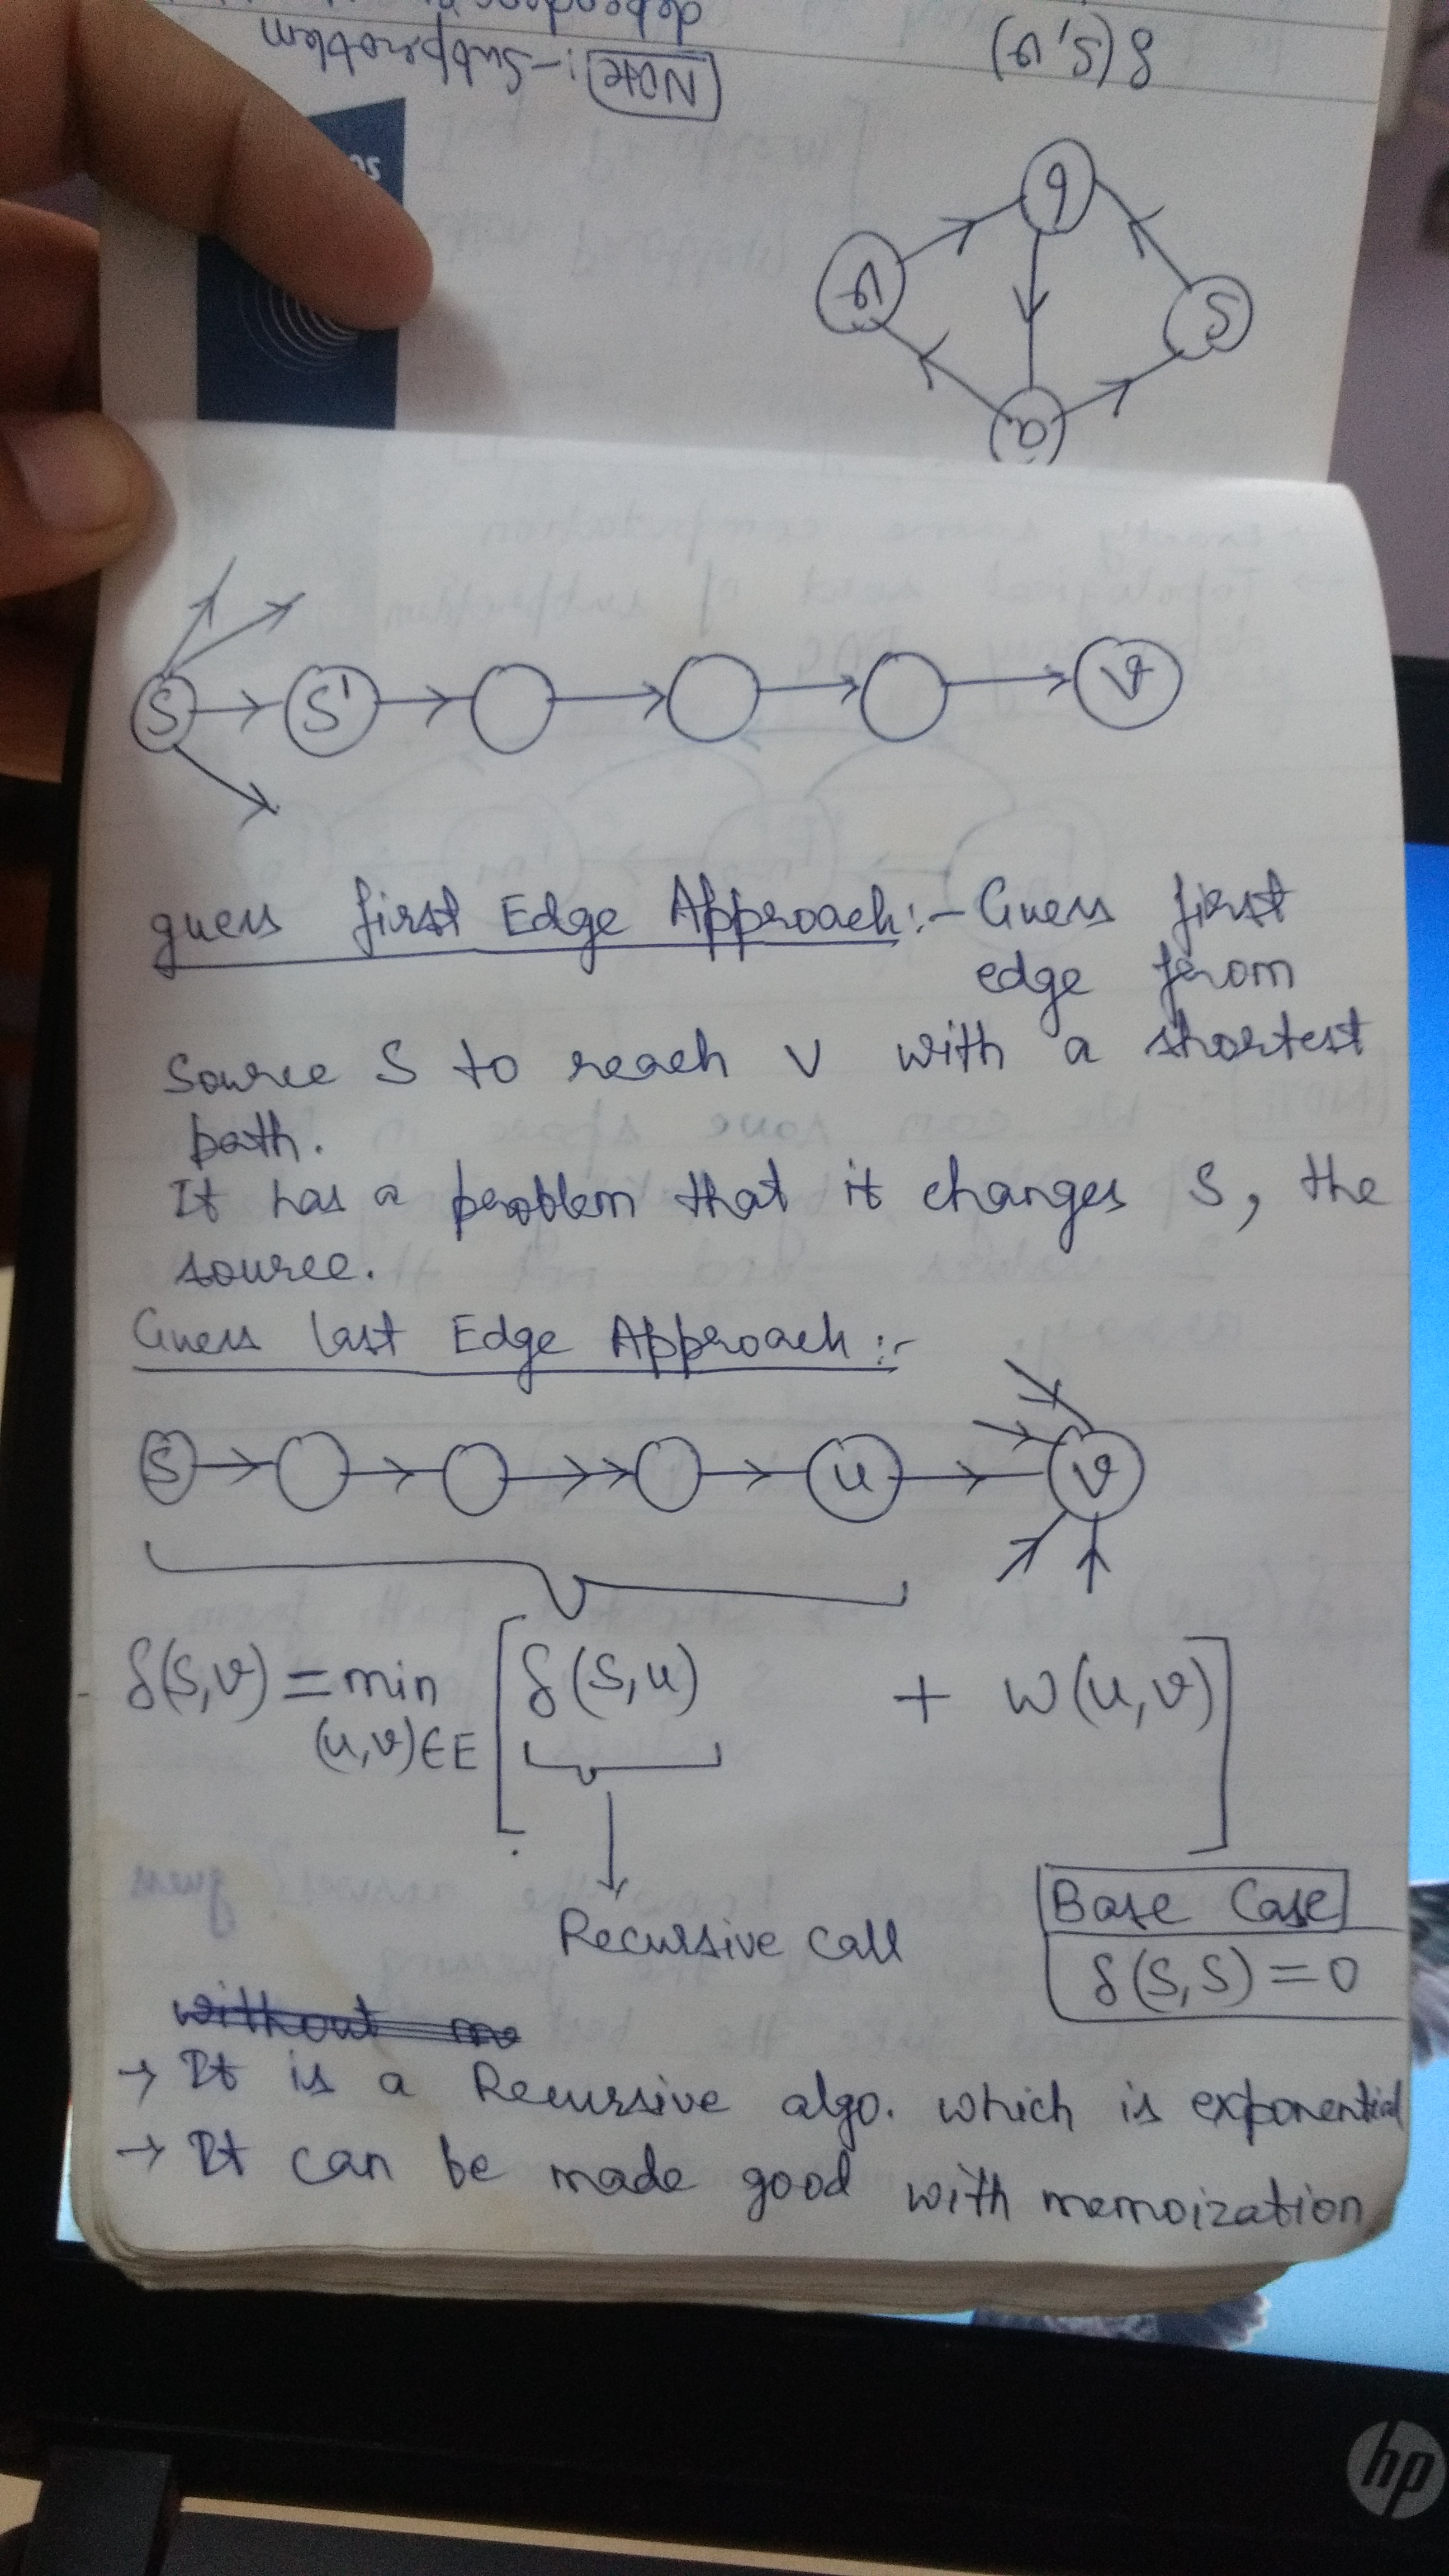 δ(s,v)
NOTE :- Subproblem
b
v
S
a
S
S'
v
guess first Edge Approach :- Guess first
edge from
Source S to reach v with a shortest
path.
It has a problem that it changes S, the
source.
Guess last Edge Approach :-
S
u
v
δ(S,v) = min [δ(S,u) + w(u,v)]
(u,v)∈E
Recursive call
Base Case
δ(S,S) = 0
without me
→ It is a Recursive algo. which is exponential
→ It can be made good with memoization
hp